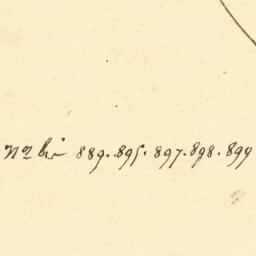 889. 895. 897. 898. 899